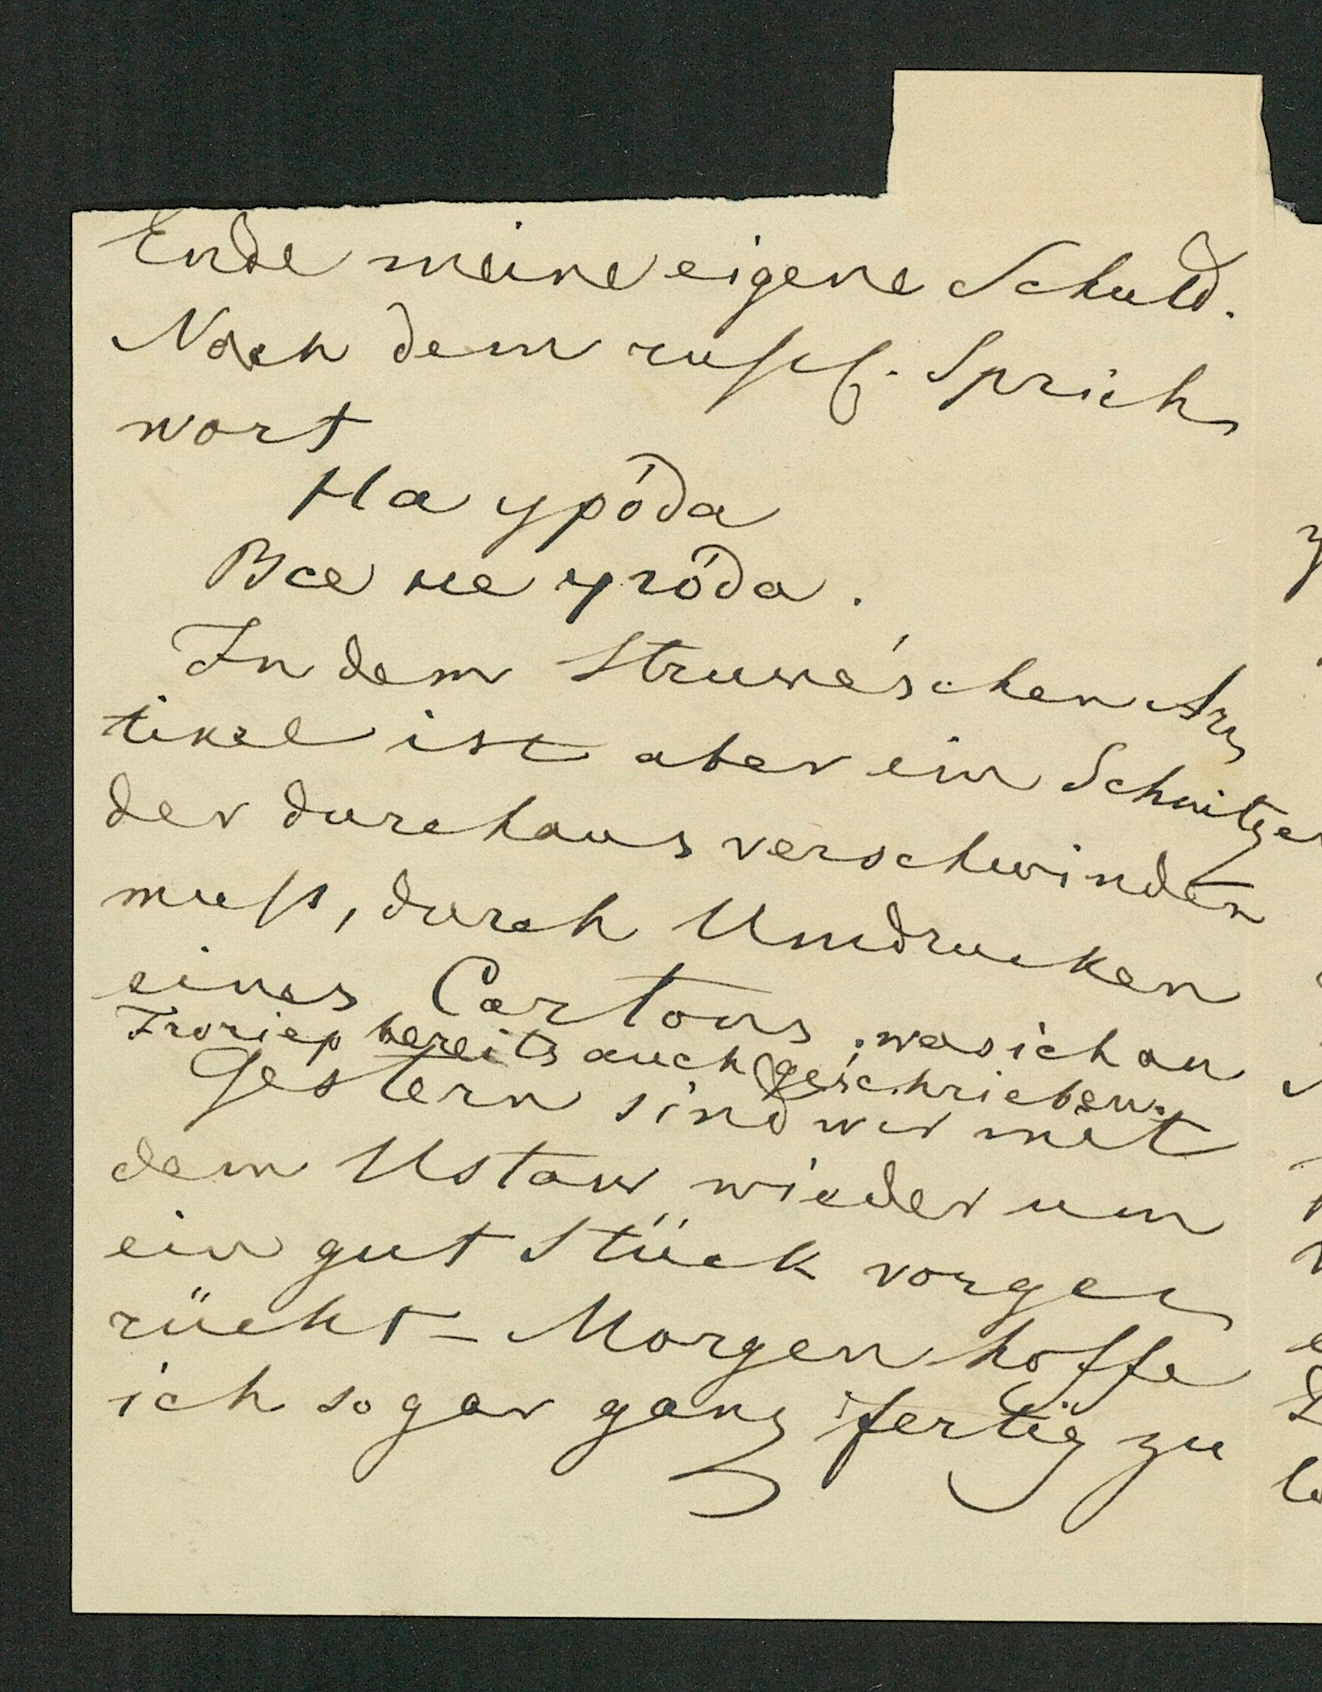 Ende meine eigene Schuld.
Nach dem russ. Sprich
wort
На урóда
Все не угóда.
In dem Struwe'schen Ar
tikel ist aber ein Schnitzer
der durchaus verschwinden
muß, durch Umdrucken
eines Cartons, was ich an
Froriep bereits auch geschrieben.
Gestern sind wir mit
dem Ustaw wieder um
ein gut Stück vorge
rückt – Morgen hoffe
ich sogar ganz fertig zu